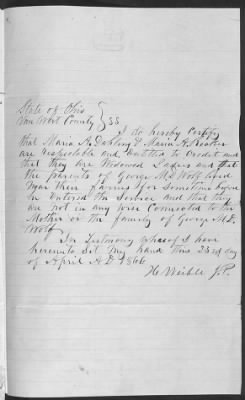 State of Ohio
Van Wert County } SS
I do hereby Certify
that Maria A. Darling & Maria A.
are respectable and Entitled to Credit and
that they are Widowed Ladies and that
the parents of George M. D. Wolf lived
Near their farms for Sometime before
he Entered the Service and that they
are not in any wise Connected to the
Mother or the family of George M. D.
Wolf
In Testimony whereof I have
hereunto Set my hand this 23rd day
of April A.D. 1866
H. Weible J.P.